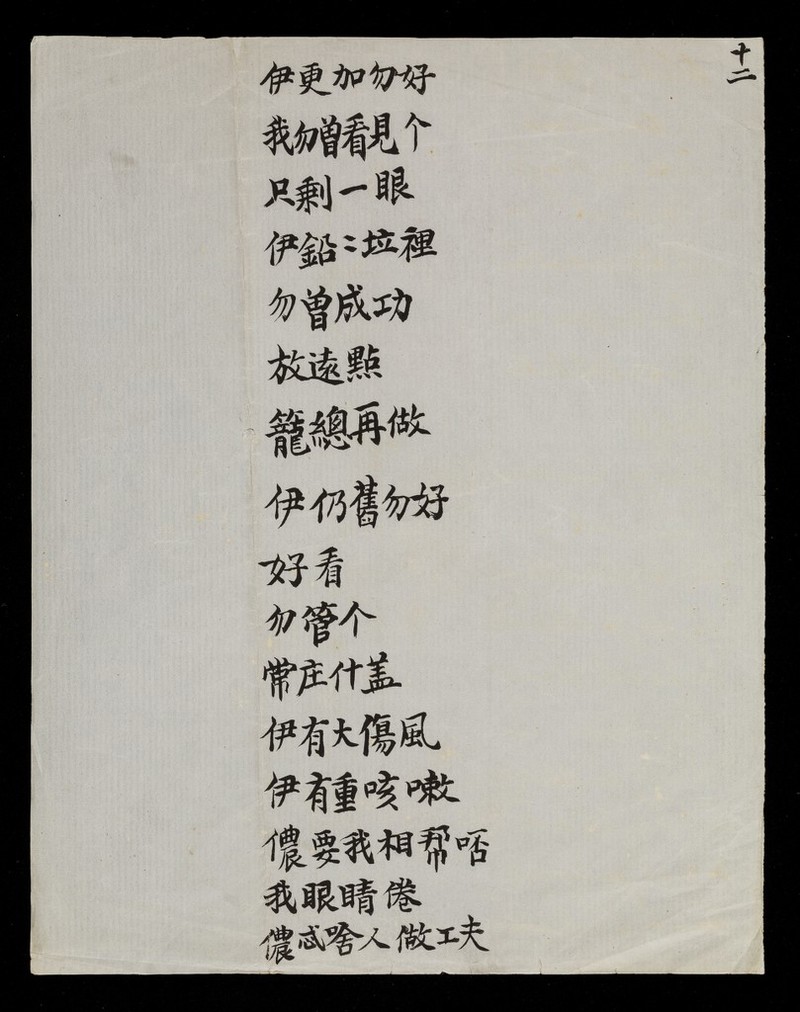 十二
伊更加勿好
我勿曾看見个
只剩一眼
伊鉛〻垃裡
勿曾成功
放遠點
籠總再做
伊仍舊勿好
好看
勿管个
常庄什盖
伊有大傷風
伊有重咳嗽
儂要我相帮唔
我眼睛倦
儂忒啥人做工夫